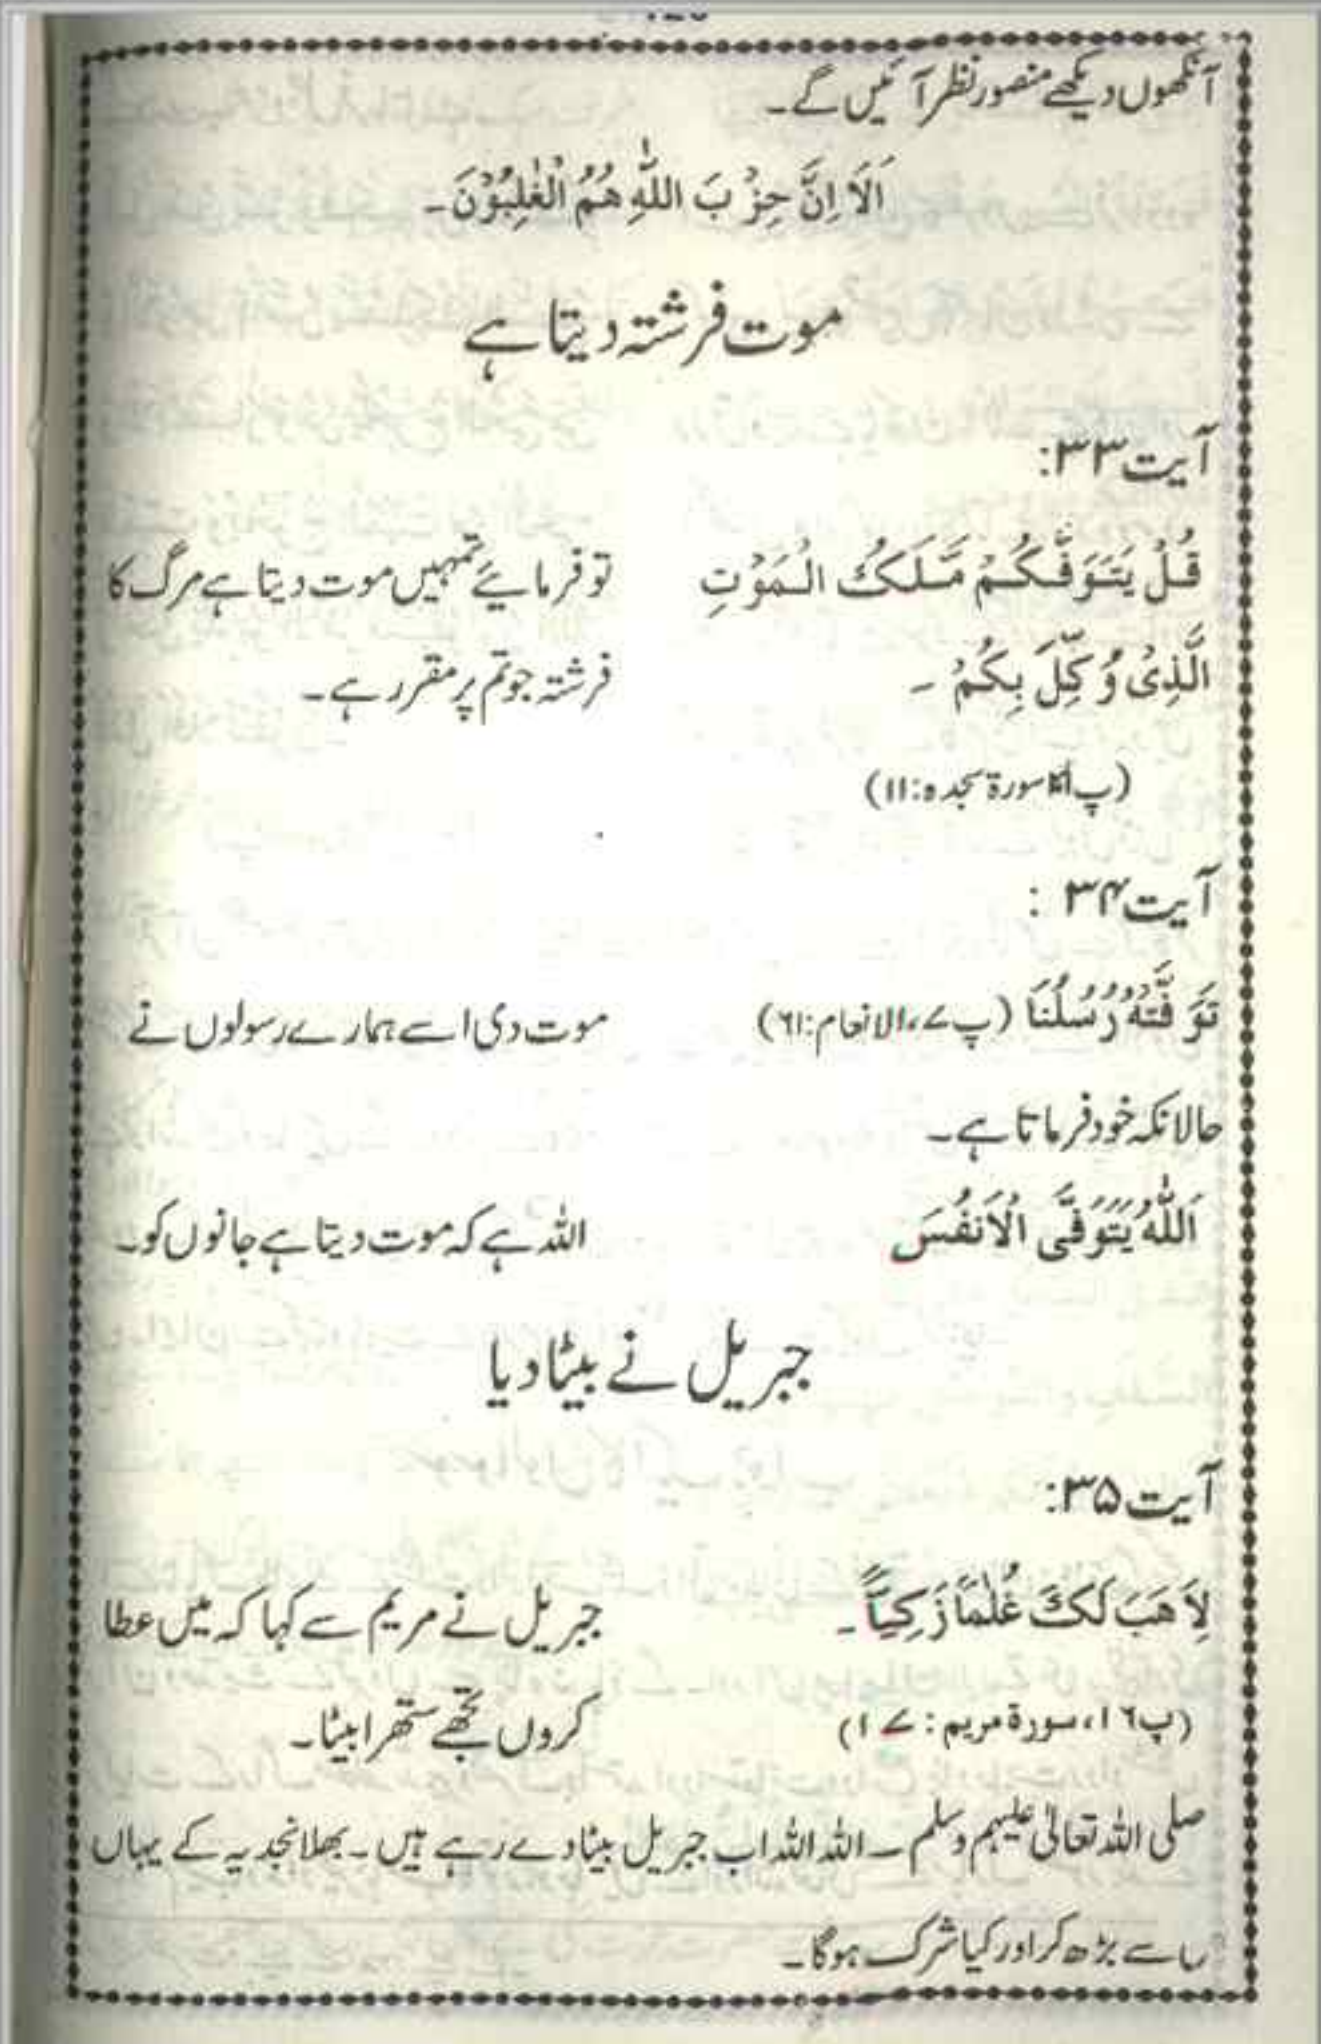 آنکھوں دیکھے منصور نظر آئیں گے۔
اَلَا اِنَّ حِزْبَ اللّٰهِ هُمُ الْغٰلِبُوْنَ۔
موت فرشتہ دیتا ہے
آیت ۳۳:
قُلْ يَتَوَفّٰكُمْ مَّلَكُ الْمَوْتِ
تو فرمایئے تمہیں موت دیتا ہے مرگ کا
الَّذِىْ وُكِّلَ بِكُمْ ۔
فرشتہ جو تم پر مقرر ہے۔
سورۃ سجدہ:۱۱)
آیت ۳۴ :
تَوَفَّتْهُ رُسُلُنَا (پ۷، الانعام:۶۱)
موت دی اسے ہمارے رسولوں نے
حالانکہ خود فرماتا ہے۔
اَللّٰهُ يَتَوَفَّى الْاَنْفُسَ
اللہ ہے کہ موت دیتا ہے جانوں کو۔
جبریل نے بیٹا دیا
آیت ۳۵:
لِاَهَبَ لَكَ غُلٰمًا زَكِيًّا۔
جبریل نے مریم سے کہا کہ میں عطا
(پ۱۶، سورۃ مریم: ۱۷)
کروں تجھے ستھرا بیٹا۔
صلی اللہ تعالیٰ علیہم وسلم ۔ اللہ اللہ اب جبریل بیٹا دے رہے ہیں۔ بھلا نجدیہ کے یہاں
سے بڑھ کر اور کیا شرک ہوگا۔